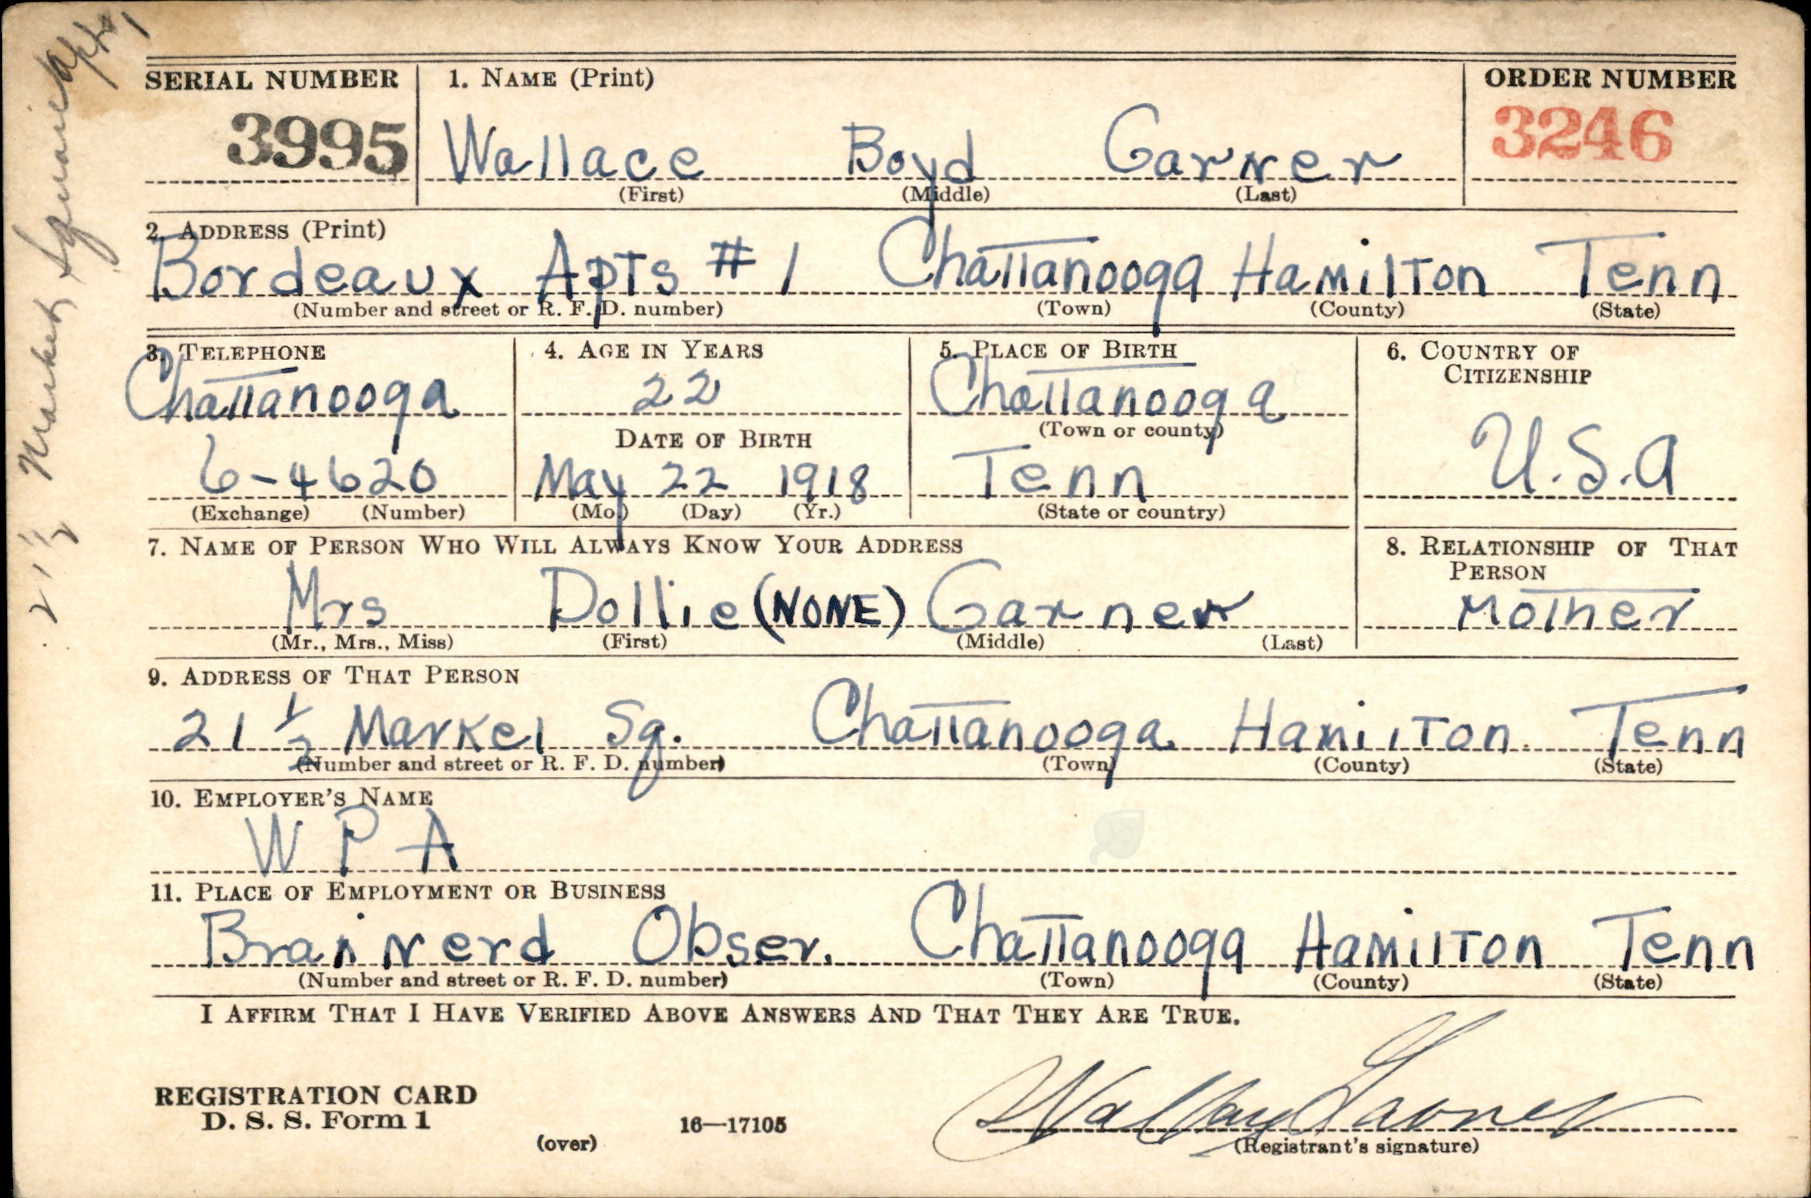 21 1/2 Market Square Apt 1
SERIAL NUMBER 1. NAME (Print) ORDER NUMBER
3995 Wallace Boyd Garner 3246
(First) (Middle) (Last)
2. ADDRESS (Print)
Bordeaux Apts # 1 Chattanooga Hamilton Tenn
(Number and street or R. F. D. number) (Town) (County) (State)
3. TELEPHONE 4. AGE IN YEARS 5. PLACE OF BIRTH 6. COUNTRY OF
CITIZENSHIP
Chattanooga 22 Chattanooga
DATE OF BIRTH (Town or county)
6-4620 May 22 1918 Tenn U.S.A
(Exchange) (Number) (Mo.) (Day) (Yr.) (State or country)
7. NAME OF PERSON WHO WILL ALWAYS KNOW YOUR ADDRESS 8. RELATIONSHIP OF THAT
PERSON
Mrs Dollie (NONE) Garner Mother
(Mr., Mrs., Miss) (First) (Middle) (Last)
9. ADDRESS OF THAT PERSON
21 1/2 Market Sq. Chattanooga Hamilton Tenn
(Number and street or R. F. D. number) (Town) (County) (State)
10. EMPLOYER'S NAME
W P A
11. PLACE OF EMPLOYMENT OR BUSINESS
Brainerd Obser. Chattanooga Hamilton Tenn
(Number and street or R. F. D. number) (Town) (County) (State)
I AFFIRM THAT I HAVE VERIFIED ABOVE ANSWERS AND THAT THEY ARE TRUE.
REGISTRATION CARD
D. S. S. Form 1 16—17105
(over) (Registrant's signature)
Garner